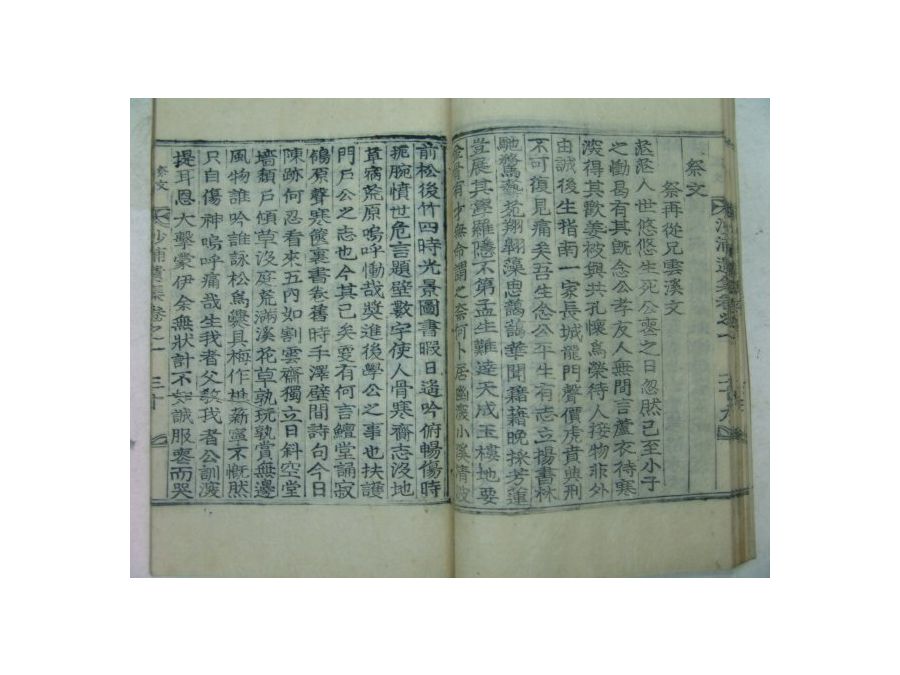 祭文
祭再從兄雲溪文
茫茫人世悠悠生死公喪之日忽然已至小子
之慟曷有其旣念公孝友人無間言蘆衣待寒
湥得其歡姜被與共孔懷爲樂待人接物非外
由誠後生指南一家長城龍門聲價虎賁典刑
不可復見痛矣吾生念公平生有志立揚書林
馳騖藝苑翔翺藻思鶺鴒華聞籍籍晩採芳蓮
豈展其學羅隱不第孟生難達天成玉樓地要
金骨有才無命謂之奈何卜居幽邃小溪淸波
前松後竹四時光景圖書暇日遙吟俯暢傷時
扼腕憤世危言題壁數字使人骨寒齋志沒地
草宿荒原嗚呼慟哉奬進後學公之事也扶護
門戶公之志也今其已矣夏有何言鱣堂誦寂
鴒原聲寒篋裏書卷舊時手澤壁間詩句今日
陳跡何忍看來五內如割雲齋獨立日斜空堂
墻頹戶傾草沒庭荒滿溪花草孰玩孰賞無邊
風物誰吟誰詠松鳥爨具梅作樵薪寧不慨然
只自傷神嗚呼痛哉生我者父敎我者公訓湥
提耳恩大擊蒙伊余無狀計不如誠服喪而哭
祭文
卷之一
三十